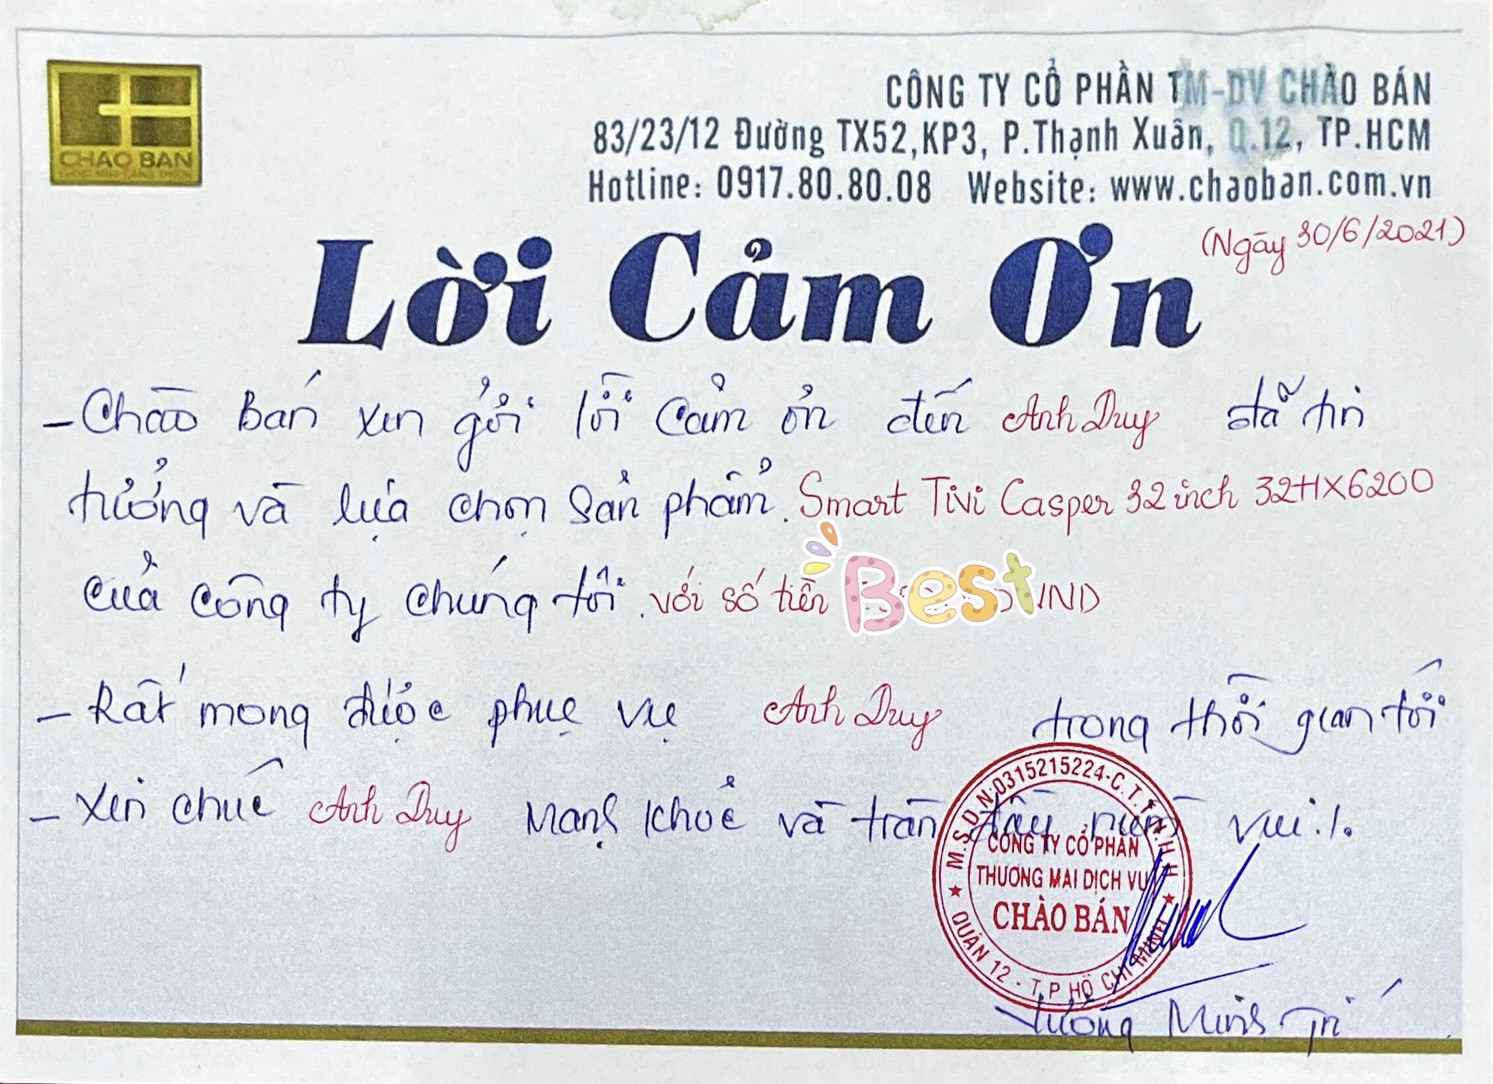 CHAO BAN
CÔNG TY CỔ PHẦN TM-DV CHÀO BÁN
83/23/12 Đường TX52,KP3, P.Thạnh Xuân, Q.12, TP.HCM
Hotline: 0917.80.80.08 Website: www.chaoban.com.vn
(Ngày 30/6/2021)
Lời Cảm Ơn
- Chào Bán xin gởi lời cảm ơn đến Anh Duy đã tin
tưởng và lựa chọn sản phẩm. Smart Tivi Casper 32 inch 32HX6200
của công ty chúng tôi. với số tiền Best VND
- Rất mong được phục vụ Anh Duy trong thời gian tới
- Xin chúc Anh Duy mạnh khoẻ và tràn đầy niềm vui./.
M.S.D.N:0315215224-C.T.
CÔNG TY CỔ PHẦN
THƯƠNG MẠI DỊCH VỤ
CHÀO BÁN
QUẬN 12 - T.P HỒ CHÍ MINH
Minh Trí